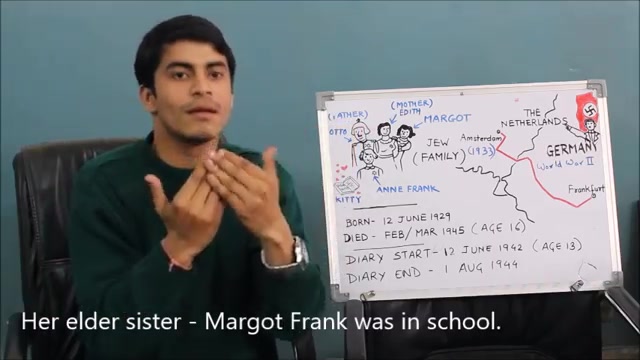 (FATHER)
OTTO
(MOTHER)
EDITH
MARGOT
JEW
(FAMILY)
ANNE FRANK
KITTY
THE
NETHERLANDS
Amsterdam
(1933)
GERMANY
World War II
Frankfurt
BORN- 12 JUNE 1929
DIED - FEB/MAR 1945 (AGE 16)
DIARY START- 12 JUNE 1942 (AGE 13)
DIARY END - 1 AUG 1944
Her elder sister - Margot Frank was in school.